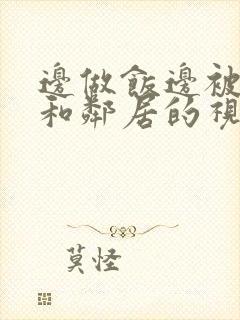 邊做飯邊被
和鄰居的視
莫怪